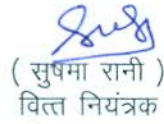 ( सुषमा रानी )
वित्त नियंत्रक